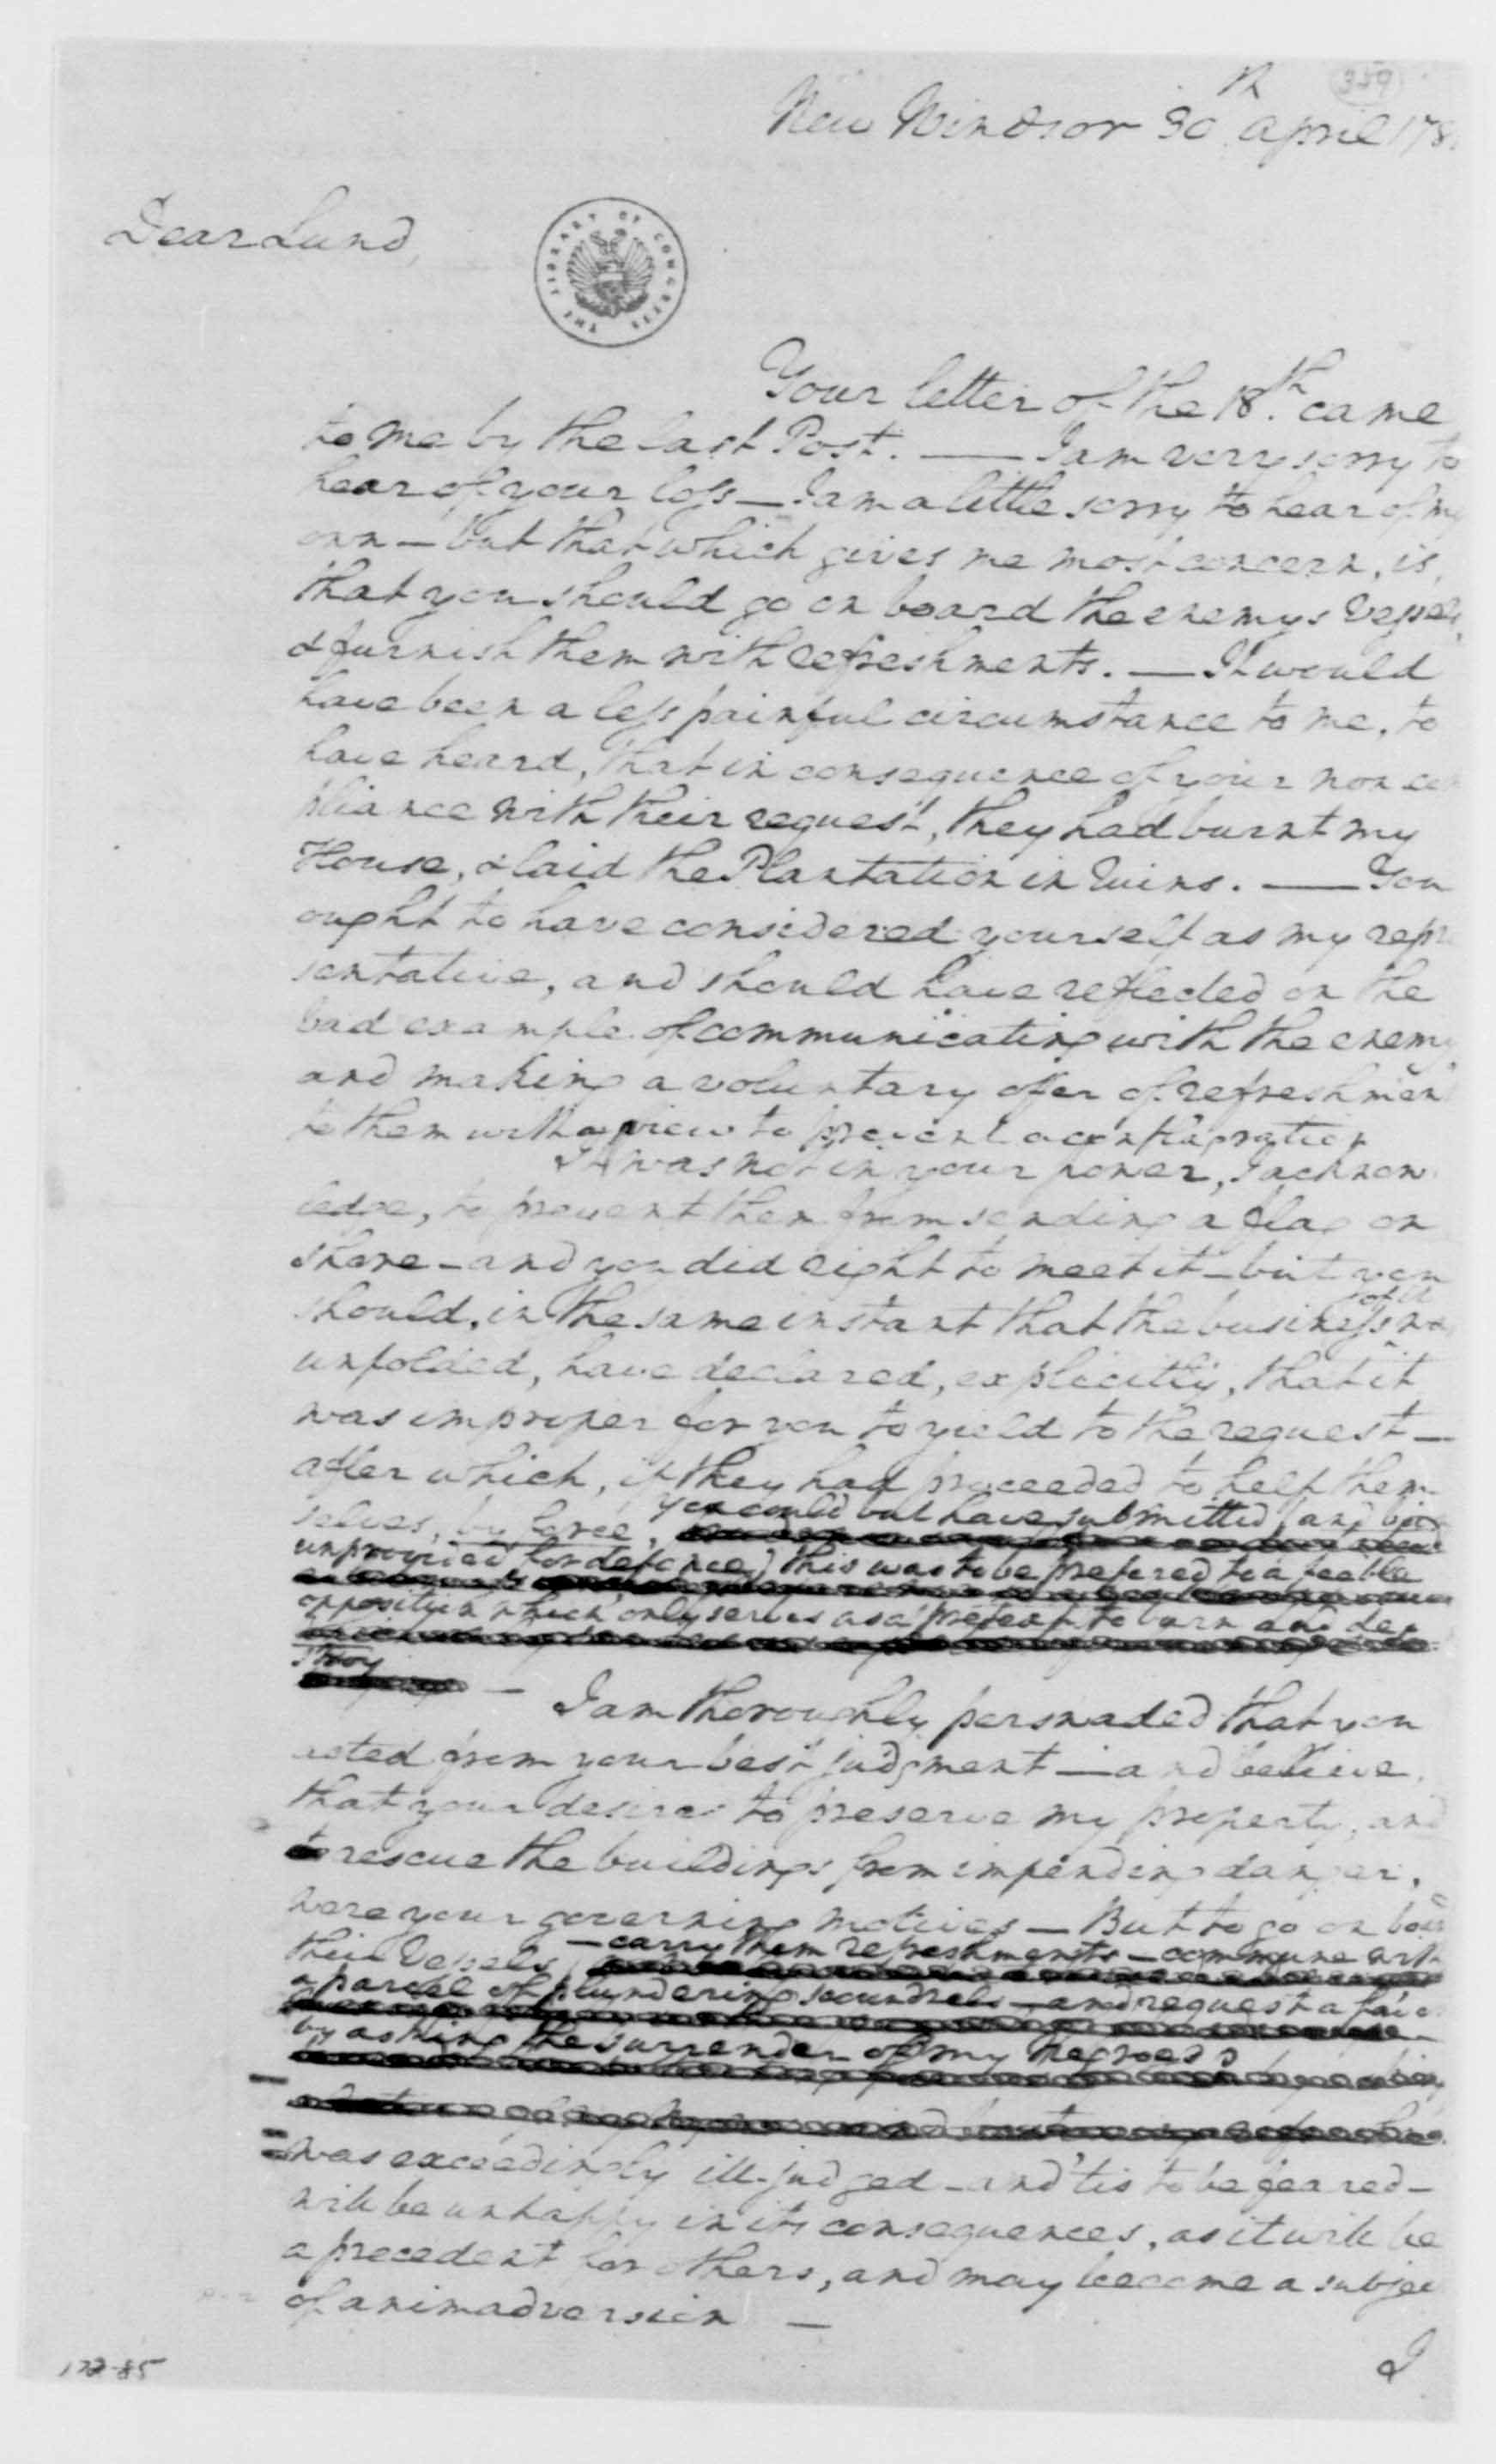 359
New Windsor 30th April 178
Dear Lund,
THE LIBRARY OF CONGRESS
Your letter of the 18th. came
to me by the last Post. — I am very sorry to
hear of your loss — I am a little sorry to hear of my
own — but that which gives me most concern, is,
that you should go on board the enemys Vessels,
& furnish them with refreshments. — It would
have been a less painful circumstance to me, to
have heard, that in consequence of your non com
pliance with their request, they had burnt my
House, & laid the Plantation in Ruins. — You
ought to have considered yourself as my repre
sentative, and should have reflected on the
bad example of communicating with the enemy
and making a voluntary offer of refreshment
to them with a view to prevent a conflagration
It was not in your power, I acknow
ledge, to prevent them from sending a flag on
shore — and you did right to meet it — but you
should, in the same instant that the business of it was
unfolded, have declared, explicitly, that it
was improper for you to yield to the request —
after which, if they had proceeded to help them
selves, by force, you could but have submitted (and being
unprovided for defence) this was to be prefered to a feeble
opposition which only serves as a pretext to burn and des
troy —
I am thoroughly perswaded that you
acted from your best judgment — and believe,
that your desire to preserve my property, and
rescue the buildings from impending danger,
were your governing motives — But to go on board
their Vessels — carry them refreshments — commune with
a parcel of plundering scoundrels — and request a favor
by asking the surrender of my Negroes
was exceedingly ill-judged — and 'tis to be feared —
will be unhappy in its consequences, as it will be
a precedent for others, and may become a subject
of animadversion —
I
172-85